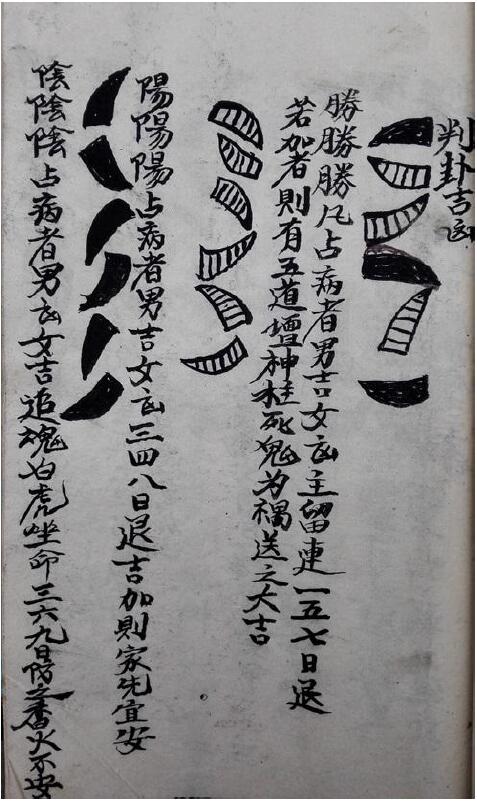 判卦吉凶
勝勝勝凡占病者男吉女凶主留連一五七日退
若加者則有五道壇神枉死鬼为禍送之大吉
陽陽陽占病者男吉女凶三四八日退吉加則家先宜安
陰陰陰占病者男凶女吉追魂白虎坐命三六九日防之香火不安